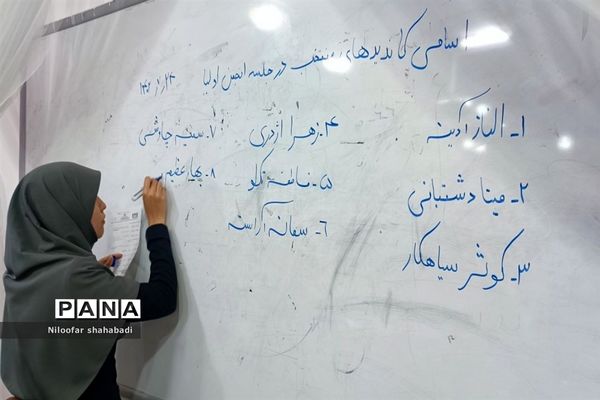 اسامی کاندیدهای منتخب در جلسه انجمن اولیا
۱- الناز آدینه
۲- مینا دشتبانی
۳- کوثر سیاهکار
۴- زهرا اژدری
۵- فائقه نکو
۶- سمانه آراسته
۷- سمیه چاوشی
۸- بهار عظیمی
PANA
Niloofar shahabadi